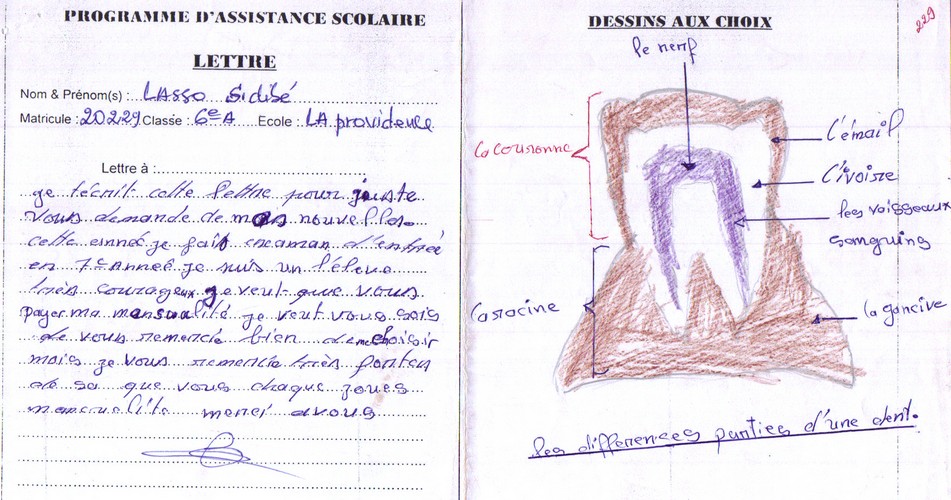 PROGRAMME D'ASSISTANCE SCOLAIRE
LETTRE
Nom & Prénom(s) : LASSO Sidibé
Matricule : 20229 Classe : 6e A Ecole : LA providence
Lettre à :
ge técrit cette lettre pour juste
vous demande de mes nouvelles.
cette année je fait examan d'entrée
en 7e année je suis un l'élève
très courageux je veut que vous
payer ma mensualité je veut vous
de vous remercié bien de choisir
mais je vous remercié très
de sa que vous chaque joues
merci avous
DESSINS AUX CHOIX
229
le nerf
la couronne
l'émail
l'ivoire
les vaisseaux
sanguins
la racine
la gencive
les différences parties d'une dent.